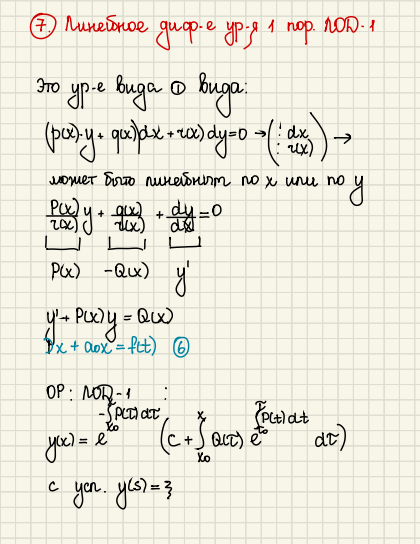 7. Линейное диф-е ур-я 1 пор. ЛОД-1
Это ур-е вида ① вида:
(p(x)·y + q(x))dx + r(x)dy = 0 → (: dx : r(x)) →
может быть линейным по x или по y
P(x)/r(x) y + q(x)/r(x) + dy/dx = 0
P(x) -Q(x) y'
y' + P(x)y = Q(x)
Dx + a₀x = f(t) ⑥
ОР: ЛОД-1 :
y(x) = e^(-∫_{x₀}^{x} P(τ)dτ) (C + ∫_{x₀}^{x} Q(τ) e^(∫_{t₀}^{τ} P(t)dt) dτ)
с усл. y(s) = ξ